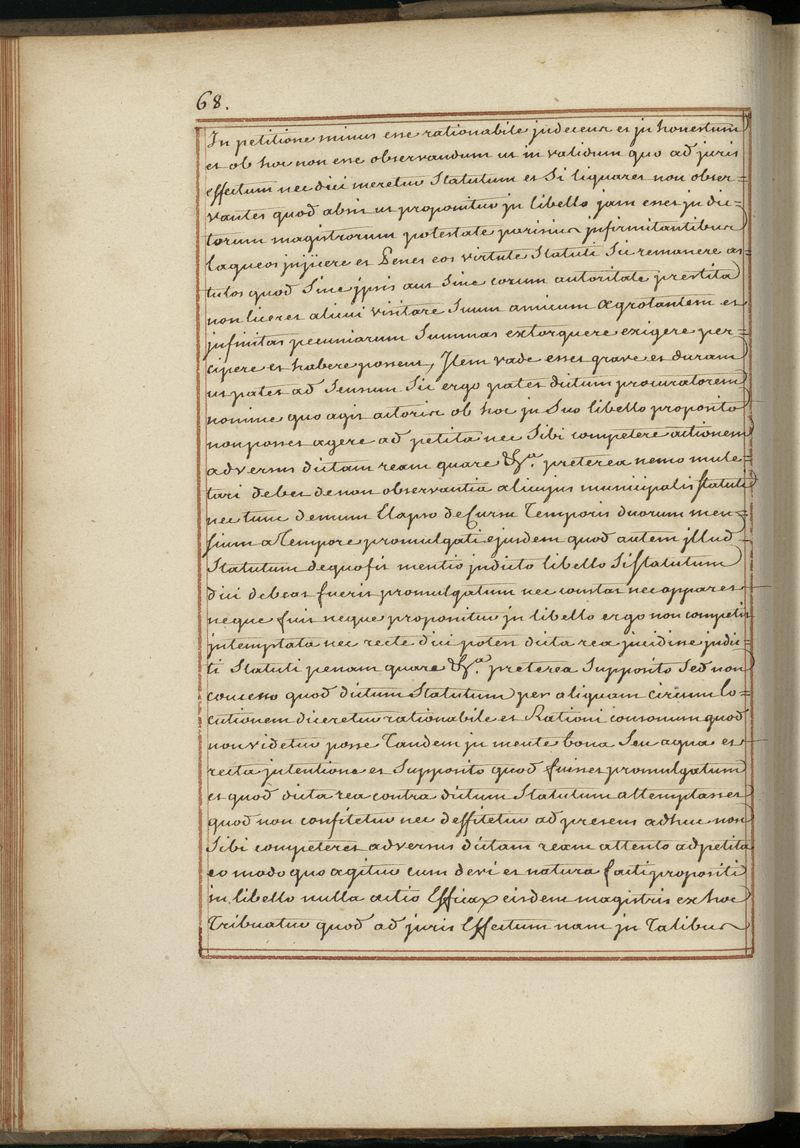 68.
In petitione minus esse rationabile judicetur et jnhonestum
et ob hoc non esse observandum ut invalidum quo ad juris
effectum nec dici meretur Statutum et Si liquaret non obser=
vantes quod absit ut proponitur jn libello jam esset jn dic=
torum magistrorum potestate parisius jnfirmitantibus
laqueos jnjicere et Penes eos virtute Statuti Sic remanere as
tutos quod Sine jpsis aut Sine eorum autoritate prestita
non liceret alicui visitare Suum amicum ægrotantem et
jnfinitas pecuniarum Summas extorquere exigere per=
cipere et habere possent, Jtem vade esset grave et duram
ut patet ad Sensum Sic ergo patet dictum procuratorem
nomine quo agit actoris ob hoc jn Suo libello proposito
non posset agere ad petita nec Sibi competere actionem
adversus dictam ream quare &ª. preterea nemo mule=
tari debet de non observantia alicujus municipalis statuti
nec tunc demum Elapso decursu Temporis duorum men=
sium a Tempore promulgati ejusdem quod autem jllud
Statutum de quo fit mentio jndicto libello Si statutum
dici debeat fuerit promulgatum nec constat nec apparet
neque fuit neque proponitur jn libello ergo non competit
jntemptata nec recte dici potest dicta rea jncidisse jndic=
ti Statuti penam quare &ª. preterea Supposito Sed non
concesso quod dictum Statutum per aliquam circum lo=
cutionem diceretur rationabile et Rationi consonum quod
non videtur posse Tandem jn mente bona Seu aqua et
recta jntentione et Supposito quod fuisset promulgatum
et quod dicta rea contra dictum Statutum attemptasset
quod non confitetur nec deffitetur ad presens adhuc non
Sibi competeret adversus dictam ream attento ad petita
eo modo quo agitur cum de vi et natura facti propositi
in libello nulla actio Efficax eisdem magistris ex hoc
Tribuatur quod ad juris Effectum nam jn Talibus